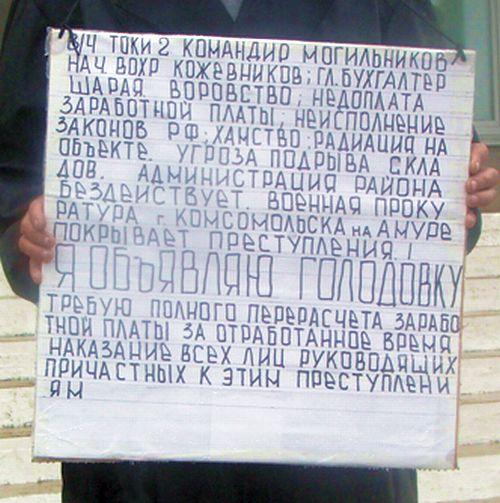 В/Ч ТОКИ 2 КОМАНДИР МОГИЛЬНИКОВ
НАЧ. ВОХР КОЖЕВНИКОВ; ГЛ. БУХГАЛТЕР
ШАРАЯ. ВОРОВСТВО; НЕДОПЛАТА
ЗАРАБОТНОЙ ПЛАТЫ; НЕИСПОЛНЕНИЕ
ЗАКОНОВ РФ; ХАМСТВО; РАДИАЦИЯ НА
ОБЪЕКТЕ. УГРОЗА ПОДРЫВА СКЛА
ДОВ. АДМИНИСТРАЦИЯ РАЙОНА
БЕЗДЕЙСТВУЕТ. ВОЕННАЯ ПРОКУ
РАТУРА г. КОМСОМОЛЬСКА НА АМУРЕ
ПОКРЫВАЕТ ПРЕСТУПЛЕНИЯ. !
Я ОБЪЯВЛЯЮ ГОЛОДОВКУ
ТРЕБУЮ ПОЛНОГО ПЕРЕРАСЧЕТА ЗАРАБО
ТНОЙ ПЛАТЫ ЗА ОТРАБОТАННОЕ ВРЕМЯ
НАКАЗАНИЕ ВСЕХ ЛИЦ РУКОВОДЯЩИХ
ПРИЧАСТНЫХ К ЭТИМ ПРЕСТУПЛЕНИ
ЯМ